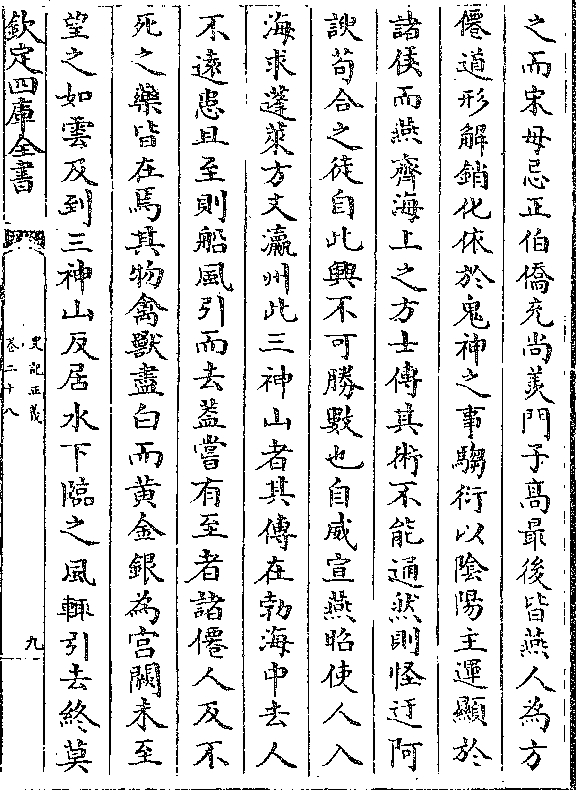 之而宋毋忌正伯僑充尚羡門子髙最後皆燕人為方
僊道形解銷化依於鬼神之事騶衍以陰陽主運顯於
諸侯而燕齊海上之方士傳其術不能通然則怪迂阿
諛茍合之徒自此興不可勝數也自威宣燕昭使人入
海求蓬萊方丈瀛州此三神山者其傳在勃海中去人
不遠患且至則船風引而去葢嘗有至者諸僊人及不
死之藥皆在焉其物禽獸盡白而黄金銀為宫闕未至
望之如雲及到三神山反居水下臨之風輙引去終莫
欽定四庫全書
史記正義
卷二十八
九